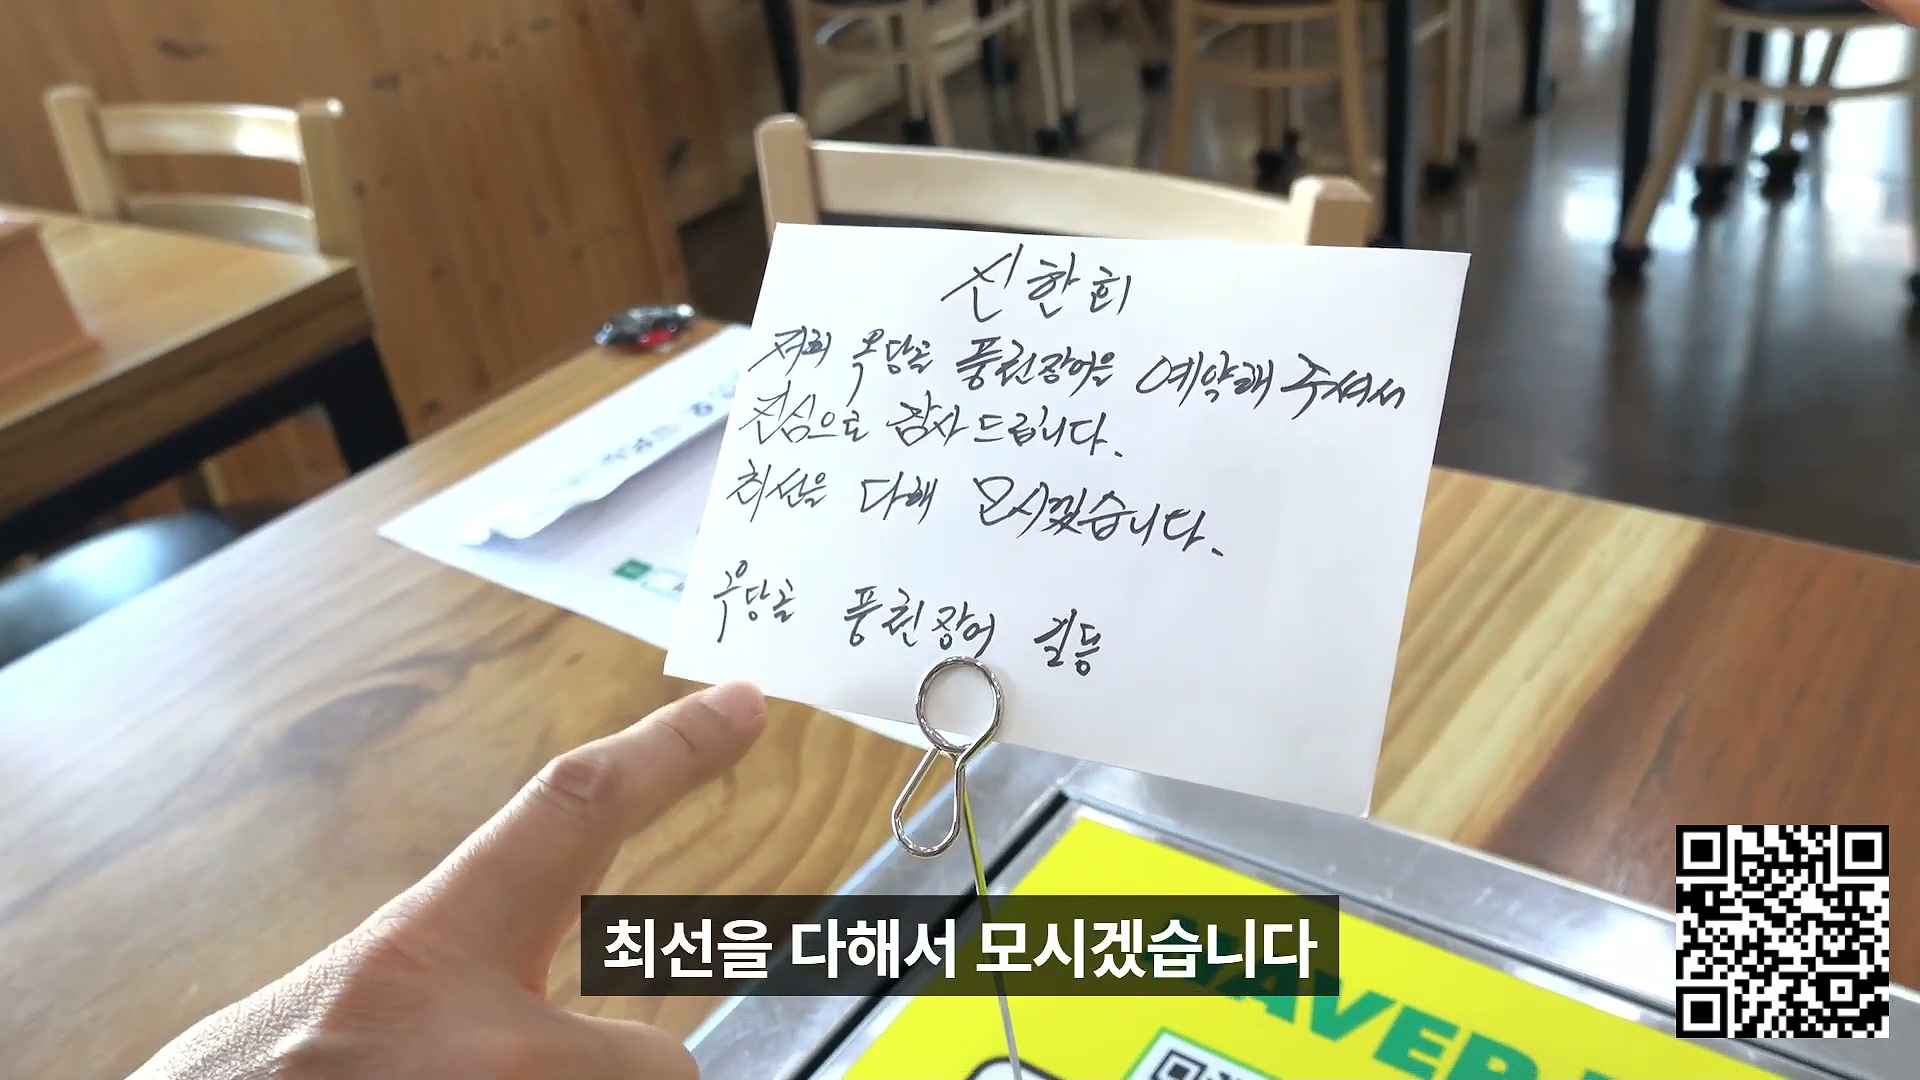 신한희
저희 옥당골 풍천장어을 예약해 주셔서
진심으로 감사드립니다.
최선을 다해 모시겠습니다.
옥당골 풍천장어 일동
최선을 다해서 모시겠습니다
NAVER